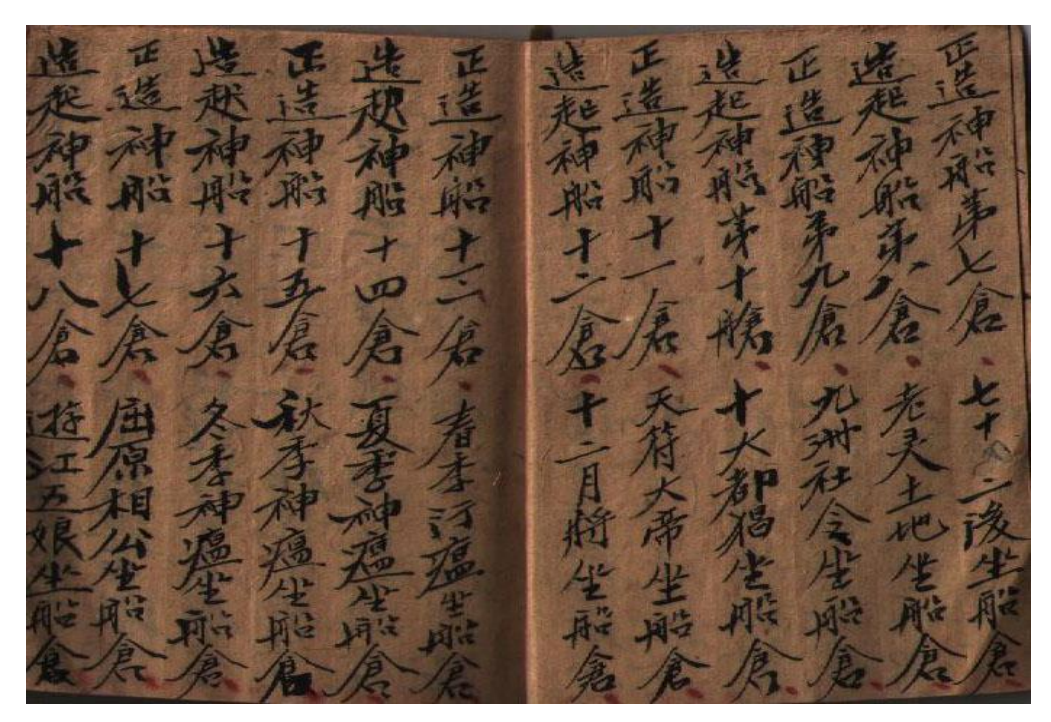 正造神船第七倉 七十二後坐船倉
造起神船第八倉 老灵土地坐船倉
正造神船第九倉 九洲社令坐船倉
造起神船第十艙 十大都猖坐船倉
正造神船十一倉 天符大帝坐船倉
造起神船十二倉 十二月將坐船倉
正造神船十三倉 春季瘟坐船倉
造起神船十四倉 夏季神瘟坐船倉
正造神船十五倉 秋季神瘟坐船倉
造起神船十六倉 冬季神瘟坐船倉
正造神船十七倉 屈原相公坐船倉
造起神船十八倉 遊江五娘坐船倉